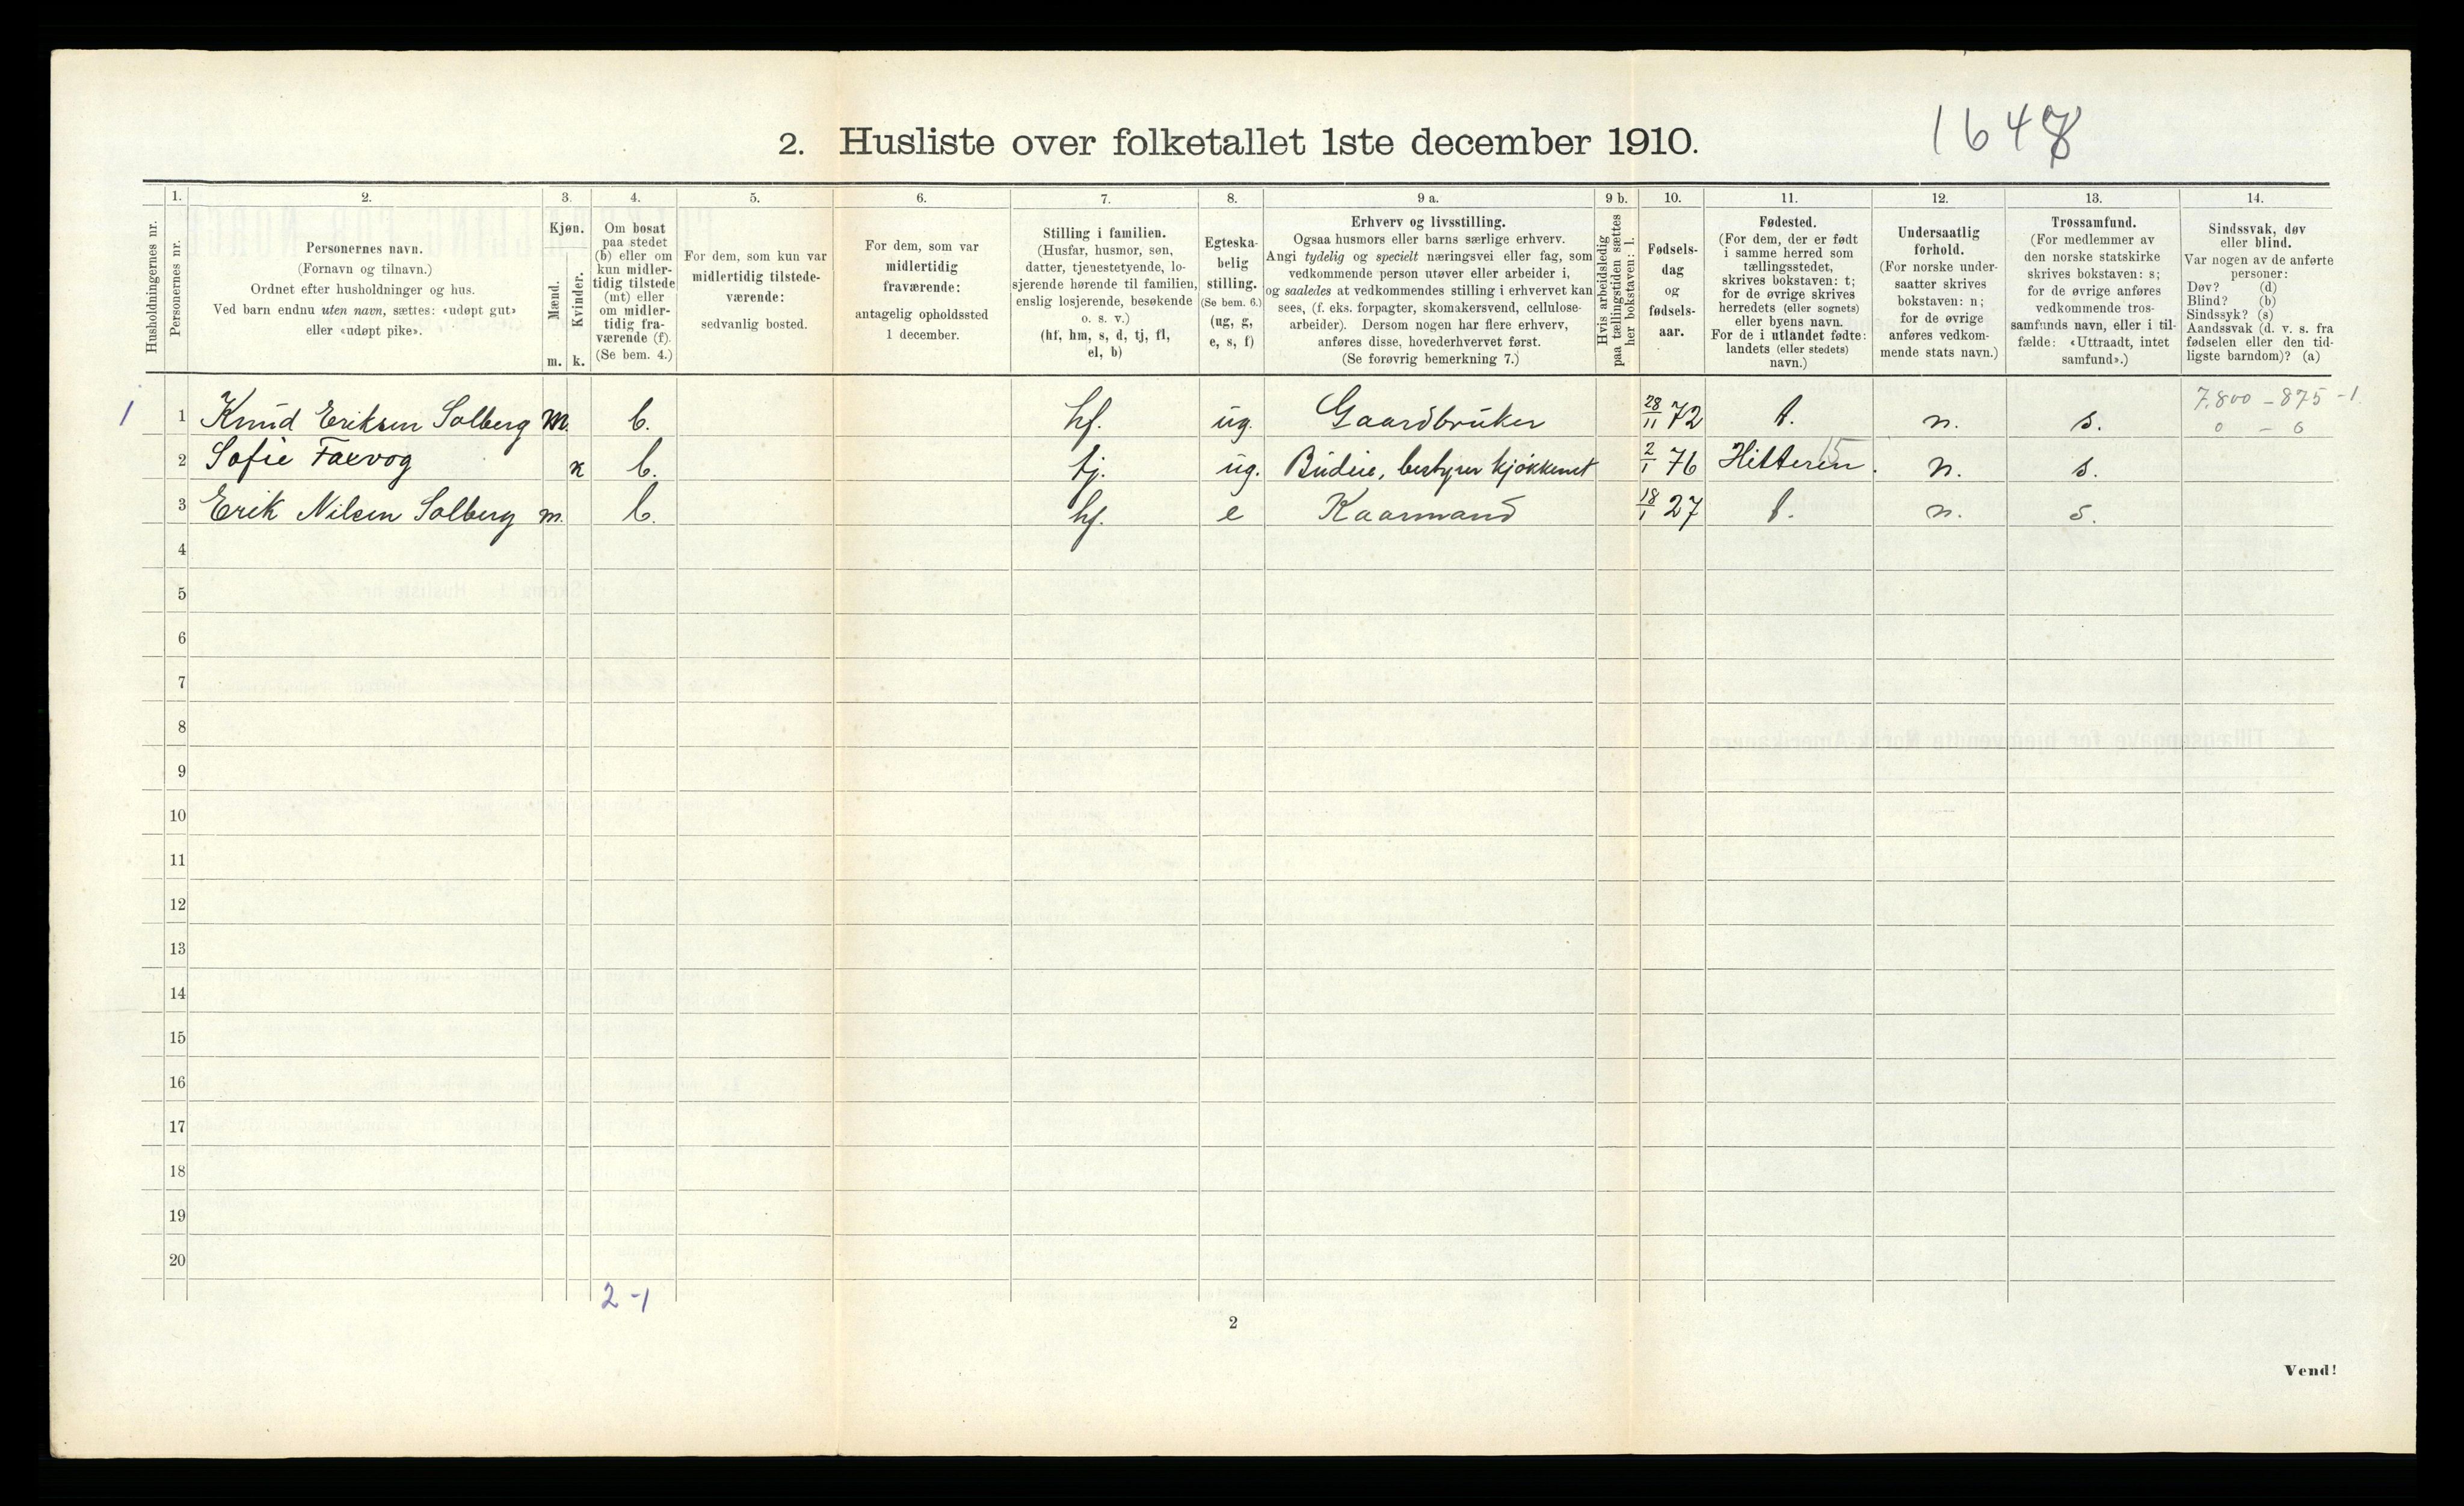 1648
2. Husliste over folketallet 1ste december 1910.
1. 2. 3. 4. 5. 6. 7. 8. 9 a. 9 b. 10. 11. 12. 13. 14.
Husholdningernes nr.
Personernes nr.
Personernes navn.
(Fornavn og tilnavn.)
Ordnet efter husholdninger og hus.
Ved barn endnu uten navn, sættes: «udøpt gut»
eller «udøpt pike».
Kjøn.
Mænd.
Kvinder.
m. k.
Om bosat
paa stedet
(b) eller om
kun midler-
tidig tilstede
(mt) eller
om midler-
tidig fra-
værende (f).
(Se bem. 4.)
For dem, som kun var
midlertidig tilstede-
værende:
sedvanlig bosted.
For dem, som var
midlertidig
fraværende:
antagelig opholdssted
1 december.
Stilling i familien.
(Husfar, husmor, søn,
datter, tjenestetyende, lo-
sjerende hørende til familien,
enslig losjerende, besøkende
o. s. v.)
(hf, hm, s, d, tj, fl,
el, b)
Egteska-
belig
stilling.
(Se bem. 6.)
(ug, g,
e, s, f)
Erhverv og livsstilling.
Ogsaa husmors eller barns særlige erhverv.
Angi tydelig og specielt næringsvei eller fag, som
vedkommende person utøver eller arbeider i,
og saaledes at vedkommendes stilling i erhvervet kan
sees, (f. eks. forpagter, skomakersvend, cellulose-
arbeider). Dersom nogen har flere erhverv,
anføres disse, hovederhvervet først.
(Se forøvrig bemerkning 7.)
Hvis arbeidsledig
paa tællingstiden sættes
her bokstaven: l.
Fødsels-
dag
og
fødsels-
aar.
Fødested.
(For dem, der er født
i samme herred som
tællingsstedet,
skrives bokstaven: t;
for de øvrige skrives
herredets (eller sognets)
eller byens navn.
For de i utlandet fødte:
landets (eller stedets)
navn.)
Undersaatlig
forhold.
(For norske under-
saatter skrives
bokstaven: n;
for de øvrige
anføres vedkom-
mende stats navn.)
Trossamfund.
(For medlemmer av
den norske statskirke
skrives bokstaven: s;
for de øvrige anføres
vedkommende tros-
samfunds navn, eller i til-
fælde: «Uttraadt, intet
samfund».)
Sindssvak, døv
eller blind.
Var nogen av de anførte
personer:
Døv? (d)
Blind? (b)
Sindssyk? (s)
Aandssvak (d. v. s. fra
fødselen eller den tid-
ligste barndom)? (a)
7.800 - 875 - 1
1 1 Knud Eriksen Solberg m. b. hf. ug. Gaardbruker 28/11 72 t. n. s. 0 - 0
2 Sofie Faxvog k b. tj. ug. Budeie, bestyrer kjøkkenet 2/1 76 Hitteren. 15 n. s.
3 Erik Nilsen Solberg m. b. hf. e Kaarmand 18/1 27 t. n. s.
4
5
6
7
8
9
10
11
12
13
14
15
16
17
18
19
20
2-1
2
Vend!